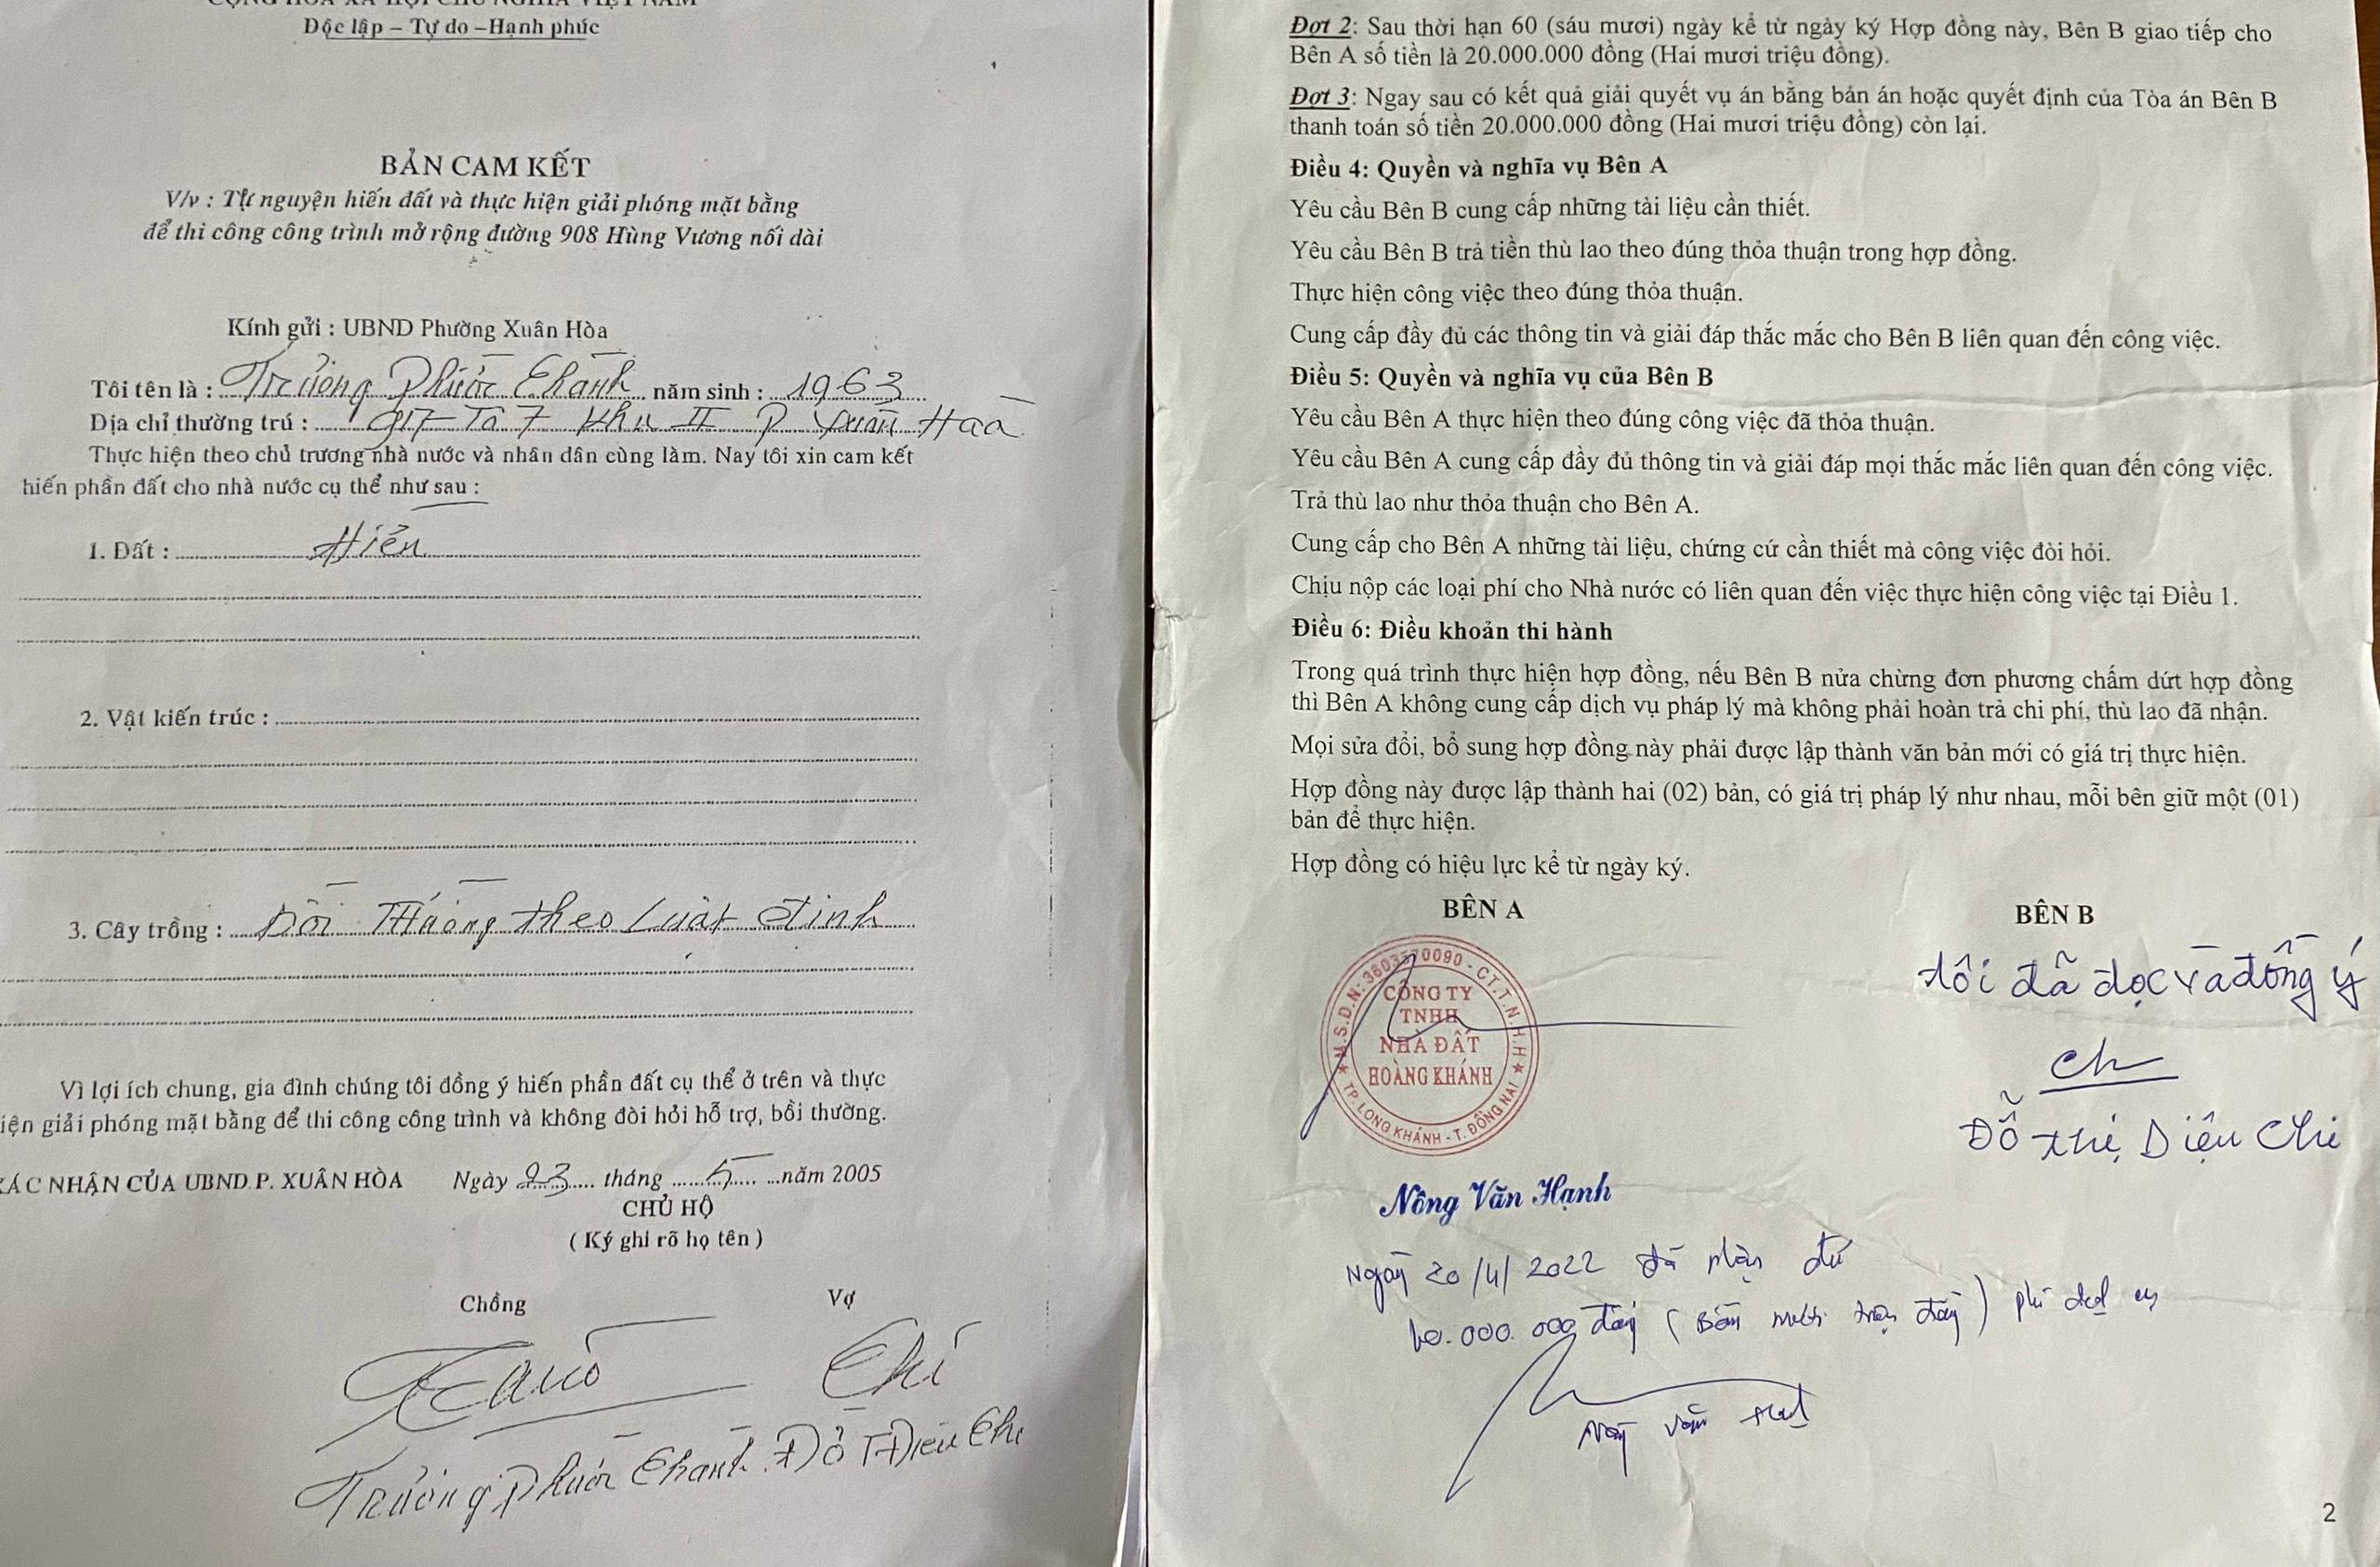 CỘNG HÒA XÃ HỘI CHỦ NGHĨA VIỆT NAM
Độc lập – Tự do –Hạnh phúc
BẢN CAM KẾT
V/v : Tự nguyện hiến đất và thực hiện giải phóng mặt bằng
để thi công công trình mở rộng đường 908 Hùng Vương nối dài
Kính gửi : UBND Phường Xuân Hòa
Tôi tên là : Trương Phước Chánh năm sinh : 1963
Địa chỉ thường trú : 917 Tổ 7 Khu II P Xuân Hoà
Thực hiện theo chủ trương nhà nước và nhân dân cùng làm. Nay tôi xin cam kết
hiến phần đất cho nhà nước cụ thể như sau :
1. Đất : Hiến
2. Vật kiến trúc :
3. Cây trồng : Bồi Thường theo Luật định
Vì lợi ích chung, gia đình chúng tôi đồng ý hiến phần đất cụ thể ở trên và thực
iện giải phóng mặt bằng để thi công công trình và không đòi hỏi hỗ trợ, bồi thường.
XÁC NHẬN CỦA UBND P. XUÂN HÒA Ngày 23 tháng 5 năm 2005
CHỦ HỘ
( Ký ghi rõ họ tên )
Chồng Vợ
Chi
Trương Phước Chánh Đỗ T Diệu Chi
Đợt 2: Sau thời hạn 60 (sáu mươi) ngày kể từ ngày ký Hợp đồng này, Bên B giao tiếp cho
Bên A số tiền là 20.000.000 đồng (Hai mươi triệu đồng).
Đợt 3: Ngay sau có kết quả giải quyết vụ án bằng bản án hoặc quyết định của Tòa án Bên B
thanh toán số tiền 20.000.000 đồng (Hai mươi triệu đồng) còn lại.
Điều 4: Quyền và nghĩa vụ Bên A
Yêu cầu Bên B cung cấp những tài liệu cần thiết.
Yêu cầu Bên B trả tiền thù lao theo đúng thỏa thuận trong hợp đồng.
Thực hiện công việc theo đúng thỏa thuận.
Cung cấp đầy đủ các thông tin và giải đáp thắc mắc cho Bên B liên quan đến công việc.
Điều 5: Quyền và nghĩa vụ của Bên B
Yêu cầu Bên A thực hiện theo đúng công việc đã thỏa thuận.
Yêu cầu Bên A cung cấp đầy đủ thông tin và giải đáp mọi thắc mắc liên quan đến công việc.
Trả thù lao như thỏa thuận cho Bên A.
Cung cấp cho Bên A những tài liệu, chứng cứ cần thiết mà công việc đòi hỏi.
Chịu nộp các loại phí cho Nhà nước có liên quan đến việc thực hiện công việc tại Điều 1.
Điều 6: Điều khoản thi hành
Trong quá trình thực hiện hợp đồng, nếu Bên B nửa chừng đơn phương chấm dứt hợp đồng
thì Bên A không cung cấp dịch vụ pháp lý mà không phải hoàn trả chi phí, thù lao đã nhận.
Mọi sửa đổi, bổ sung hợp đồng này phải được lập thành văn bản mới có giá trị thực hiện.
Hợp đồng này được lập thành hai (02) bản, có giá trị pháp lý như nhau, mỗi bên giữ một (01)
bản để thực hiện.
Hợp đồng có hiệu lực kể từ ngày ký.
BÊN A BÊN B
M.S.D.N: 3603570090 - C.T.T.N.H.H
CÔNG TY
TNHH
NHÀ ĐẤT
HOÀNG KHÁNH
TP. LONG KHÁNH - T. ĐỒNG NAI
tôi đã đọc và đồng ý
Ch
Đỗ thị Diệu Chi
Nông Văn Hạnh
Ngày 20/4/2022 đã nhận đủ
40.000.000 đồng (Bốn mươi triệu đồng) phí
Nông Văn Hạnh
2